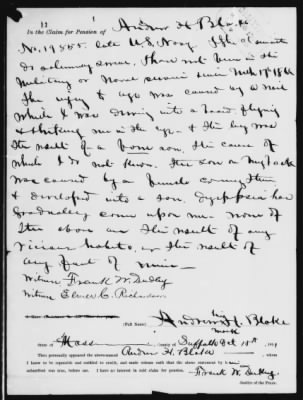 11
In the Claim for Pension of Andrew H Blake
No. 19855. late U.S. Navy. I the claimant
do solemnly swear. I have not been in the
Military or Naval service since
The injury to eye was caused by a nail
while I was driving into a board flying
& striking me in the eye. & the leg was
the result of a sore. The cause of
which I do not know. The sore on my neck
was caused by a pimple coming there
& developed into a sore. Dyspepsia has
gradually come upon me. None of
the above are the result of any
vicious habits, or the result of
any fault of mine—
Witness Frank W. Dudley
Witness Elmer C. Richardson
his
(Full Name) Andrew H. Blake
mark
State of Mass County of Suffolk Oct 18th
Then personally appeared the above-named Andrew H. Blake whom
I know to be reputable and entitled to credit, and made solemn oath that the above statement by him
subscribed was true, before me. I have no interest in said claim for pension.
Frank W. Dudley
Justice of the Peace.